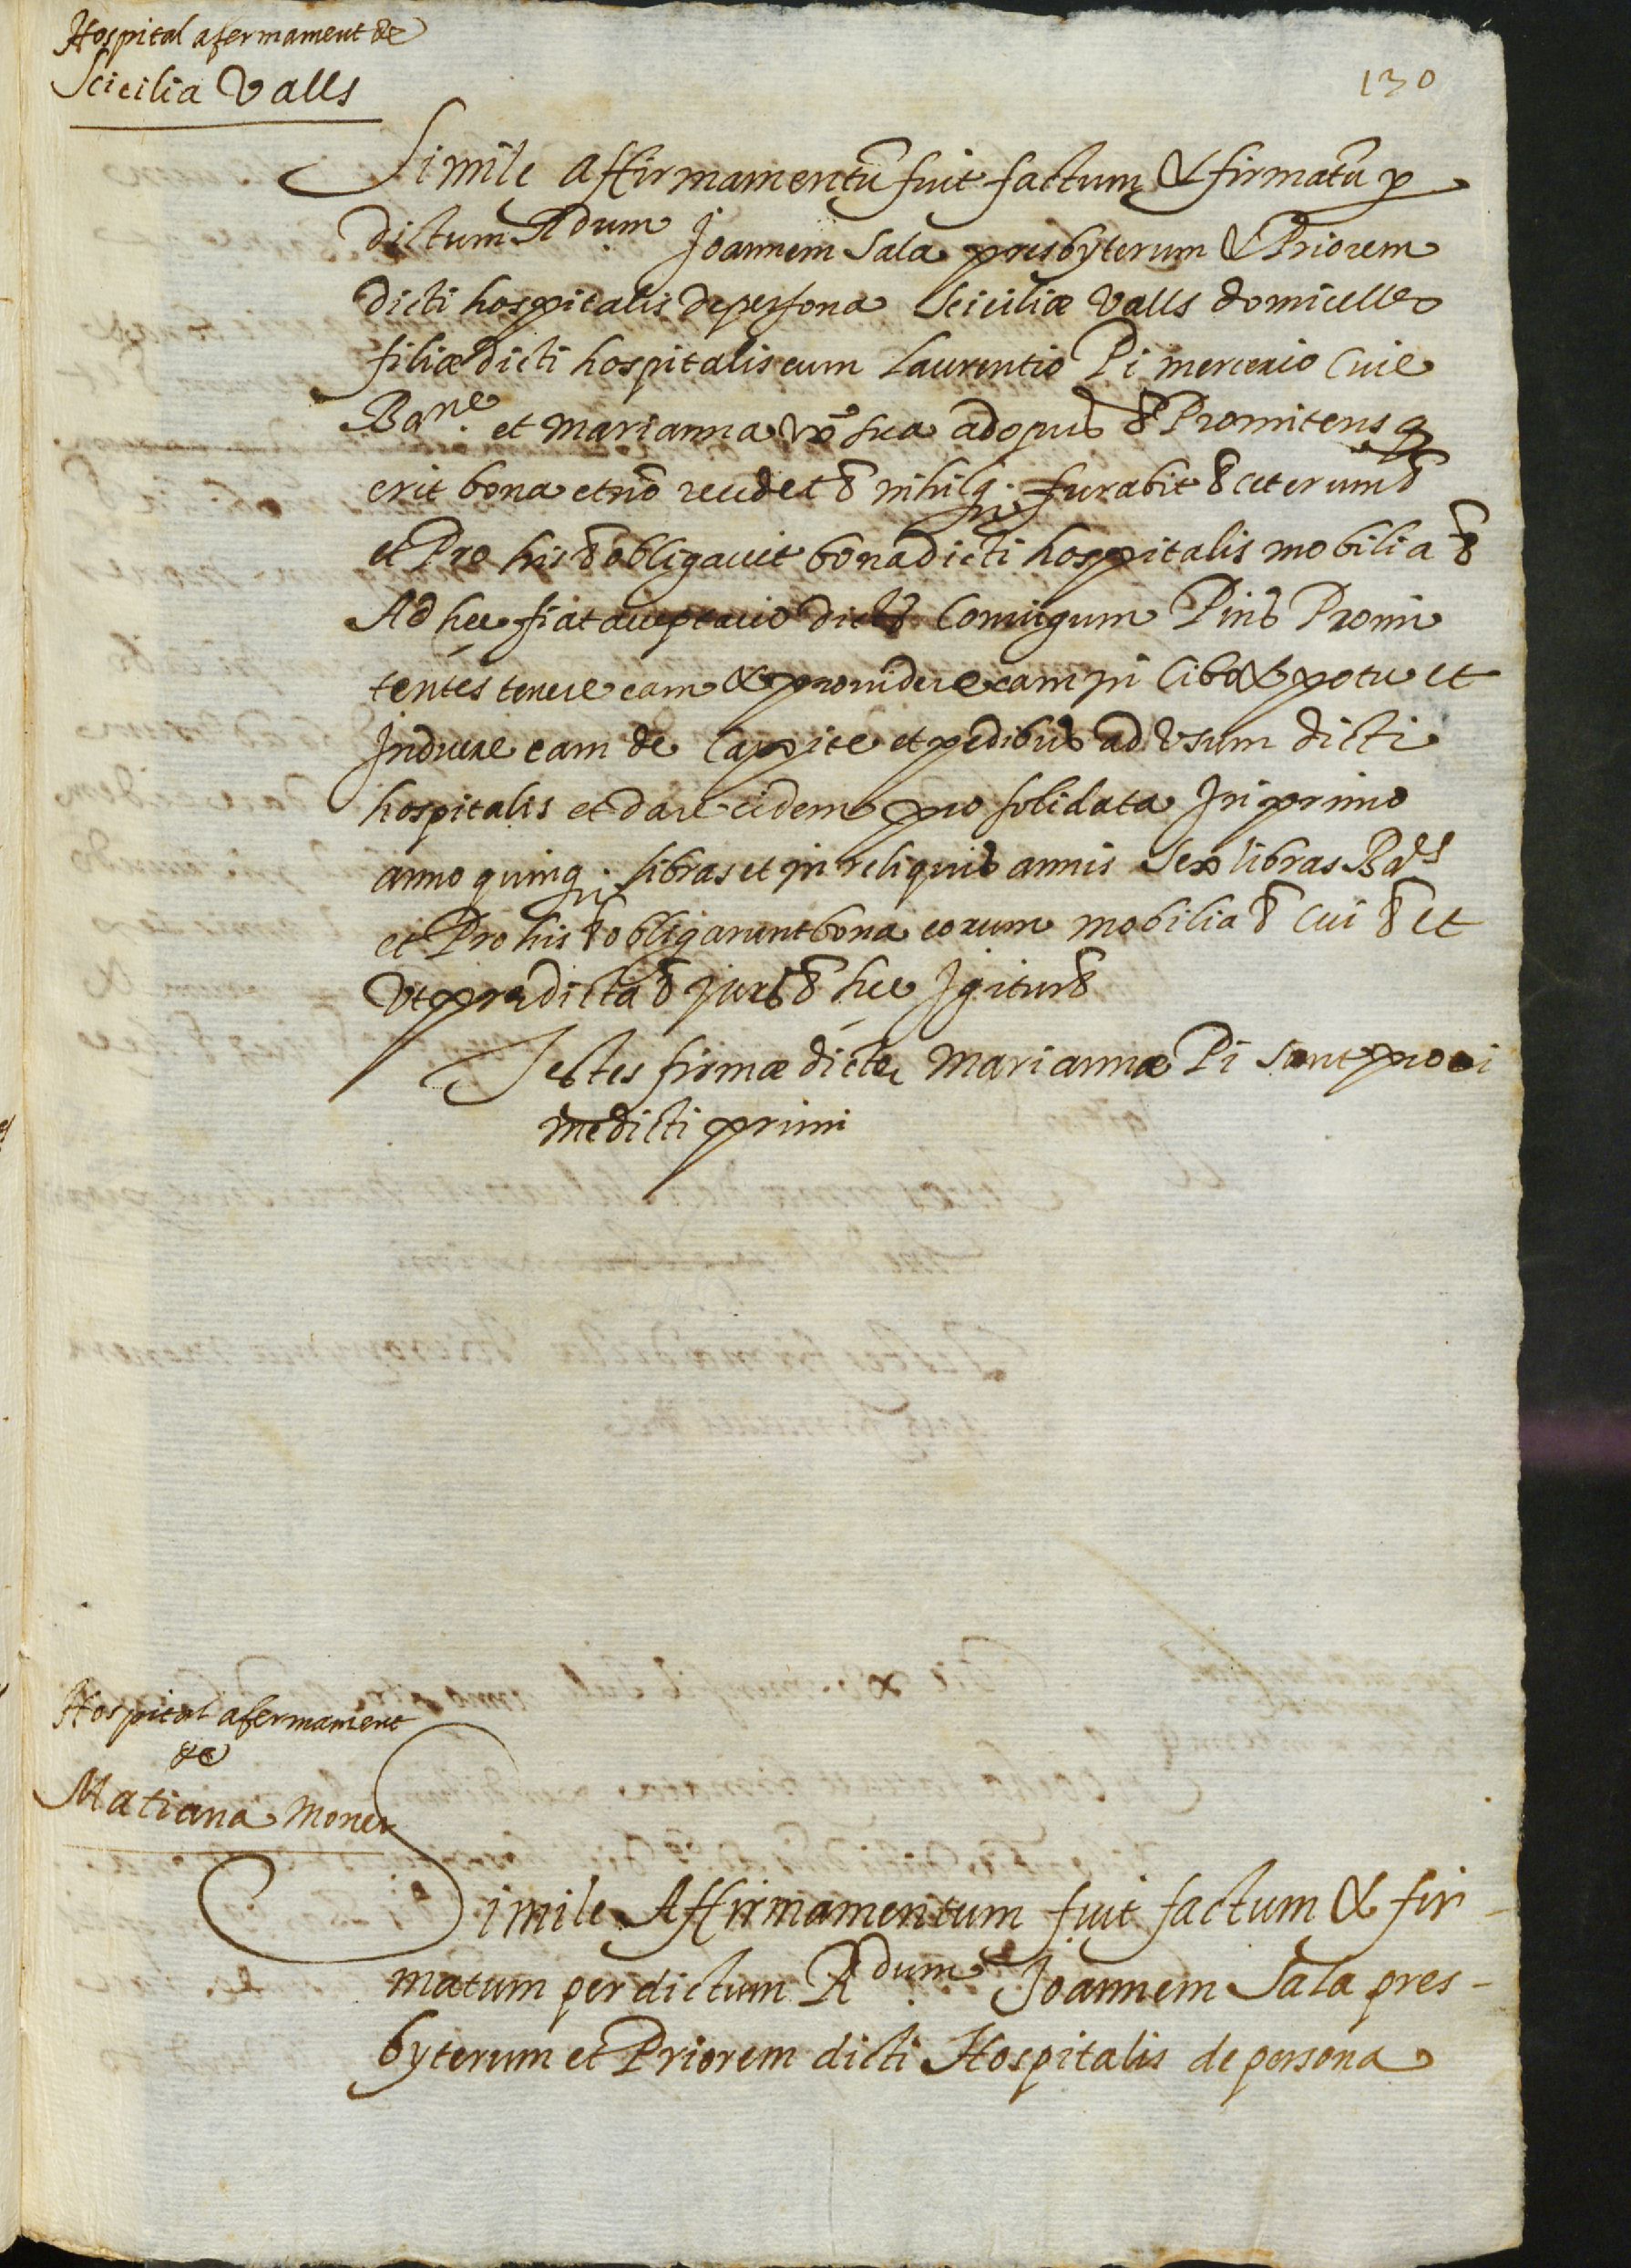 Hospital afermament de
Scicilia Valls
130
Simile Affirmamentũ fuit factum & firmatũ p
dictum Rdum. Joannem Sala presbyterum & Priorem
dicti hospitalis de persona Sciciliæ Valls domicelle
filiæ dicti hospitalis cum Laurentio Pi mercerio Cive
Barne. et Marianna vxõ sua ad opus & Promitens q
erit bona et nõ recedet & nihilq. furabit & ceterum &
et Pro his & obligavit bona dicti hospitalis mobilia &
Ad hec fiat acceptacio dictȝ Coniugum Pins Promi
tentes tenere eam & providere eam in Cibo & potu et
Induere eam de Capite et pedibus ad Vsum dicti
hospitalis et dare eidem pro solidata In primo
anno quinq. libras et in reliquis annis Sex libras Bals
et Pro his & obligarunt bona eorum mobilia & Cui & et
Vt prædicta & jurȝ & hec Igitur &
Testes firmæ dictæ Mariannæ Pi sunt proxi
me dicti primi
Hospital afermament
de
Matiana Moner
Simile Affirmamentum fuit factum & fir-
matum per dictum Rdum. Joannem Sala pres-
byterum et Priorem dicti Hospitalis de persona